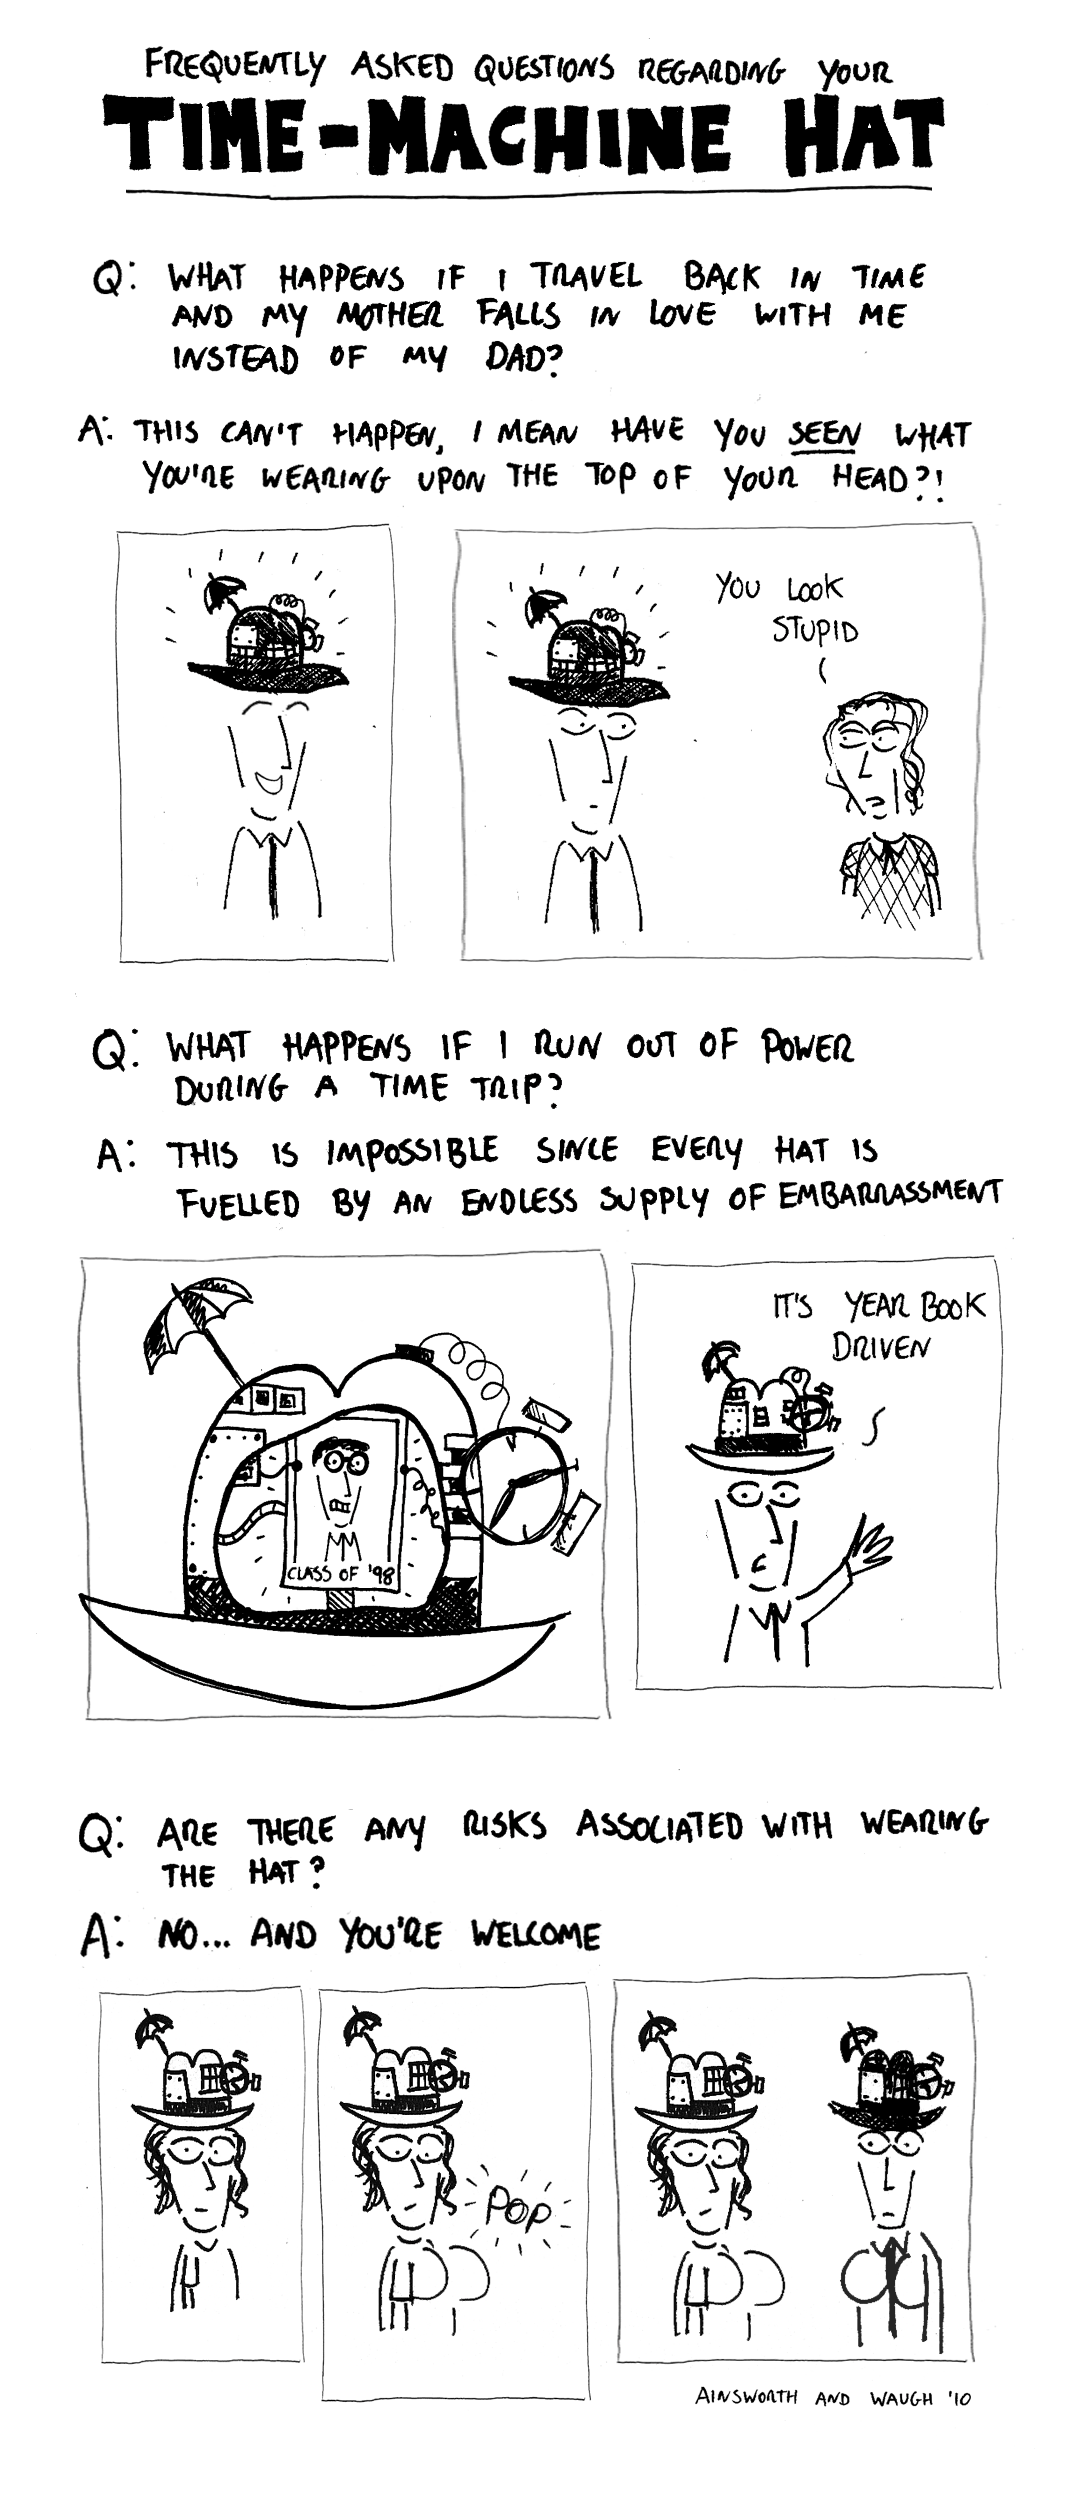 FREQUENTLY ASKED QUESTIONS REGARDING YOUR
TIME-MACHINE HAT
Q: WHAT HAPPENS IF I TRAVEL BACK IN TIME
AND MY MOTHER FALLS IN LOVE WITH ME
INSTEAD OF MY DAD?
A: THIS CAN'T HAPPEN, I MEAN HAVE YOU SEEN WHAT
YOU'RE WEARING UPON THE TOP OF YOUR HEAD?!
YOU LOOK
STUPID
Q: WHAT HAPPENS IF I RUN OUT OF POWER
DURING A TIME TRIP?
A: THIS IS IMPOSSIBLE SINCE EVERY HAT IS
FUELLED BY AN ENDLESS SUPPLY OF EMBARRASSMENT
CLASS OF '98
IT'S YEAR BOOK
DRIVEN
Q: ARE THERE ANY RISKS ASSOCIATED WITH WEARING
THE HAT?
A: NO... AND YOU'RE WELCOME
POP
AINSWORTH AND WAUGH '10